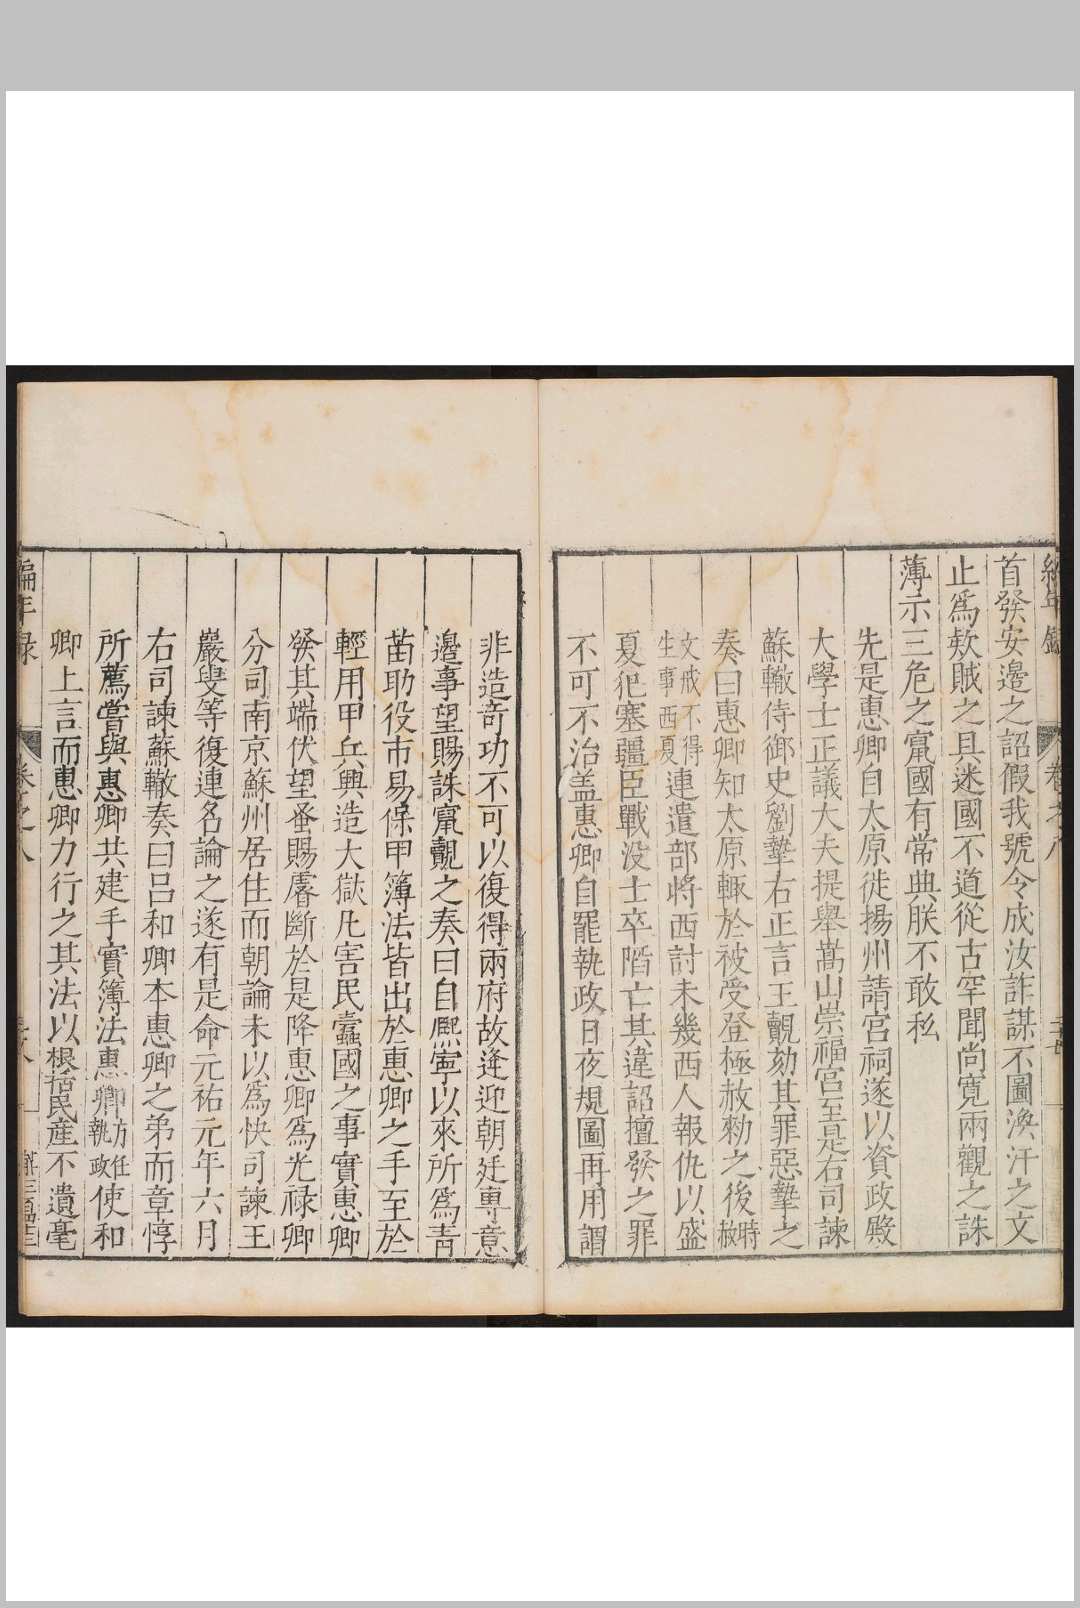 首發安邊之詔假我號令成汝詐謀不圖渙汗之文
止爲欺賊之具迷國不道從古罕聞尚寛兩觀之誅
薄示三危之竄國有常典朕不敢私
先是惠卿自太原徙揚州請宫祠遂以資政殿
大學士正議大夫提舉嵩山崇福宫至是右司諫
蘇轍侍御史劉摯右正言王覿劾其罪惡摯之
奏曰惠卿知太原輙於被受登極赦勑之後時赦
文戒不得生事西夏連遣部將西討未幾西人報仇以盛
夏犯塞疆臣戰没士卒陷亡其違詔擅發之罪
不可不治盖惠卿自罷執政日夜規圖再用謂
非造竒功不可以復得兩府故逢迎朝廷專意
邊事望賜誅竄覿之奏曰自熙寧以來所爲青
苗助役市易保甲簿法皆出於惠卿之手至於
輕用甲兵興造大獄凡害民蠹國之事實惠卿
發其端伏望蚤賜睿斷於是降惠卿爲光禄卿
分司南京蘇州居住而朝論未以爲快司諫王
巖叟等復連名論之遂有是命元祐元年六月
右司諫蘇轍奏曰吕和卿本惠卿之弟而章惇
所薦嘗與惠卿共建手實簿法惠卿方任執政使和
卿上言而惠卿力行之其法以根括民産不遺毫
編年録 卷之八